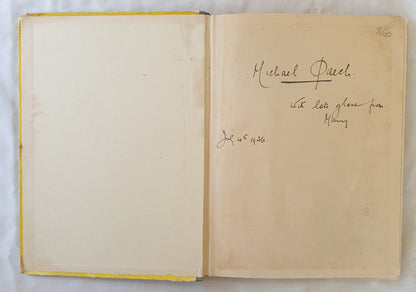 $60
Michael Paech.
With lots of love from
Mummy
July 4th 1926.